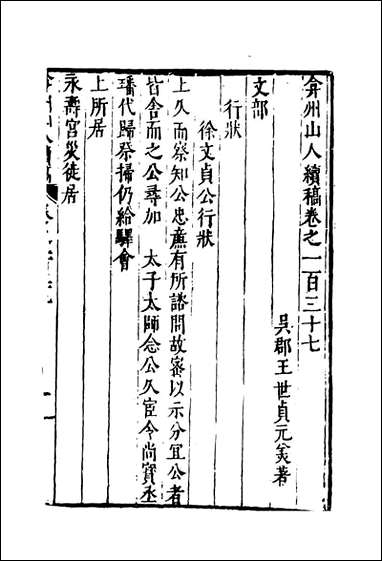 弇州山人續稿卷之一百三十七
吳郡王世貞元美著
文部
行狀
徐文貞公行狀
上久而察知公忠藎有所諮問故審以示分宜公者
皆舍而之公尋加　太子太師念公久宦令尚寶丞
璠代歸祭掃仍給驛會
上所居
永壽宮災徙居